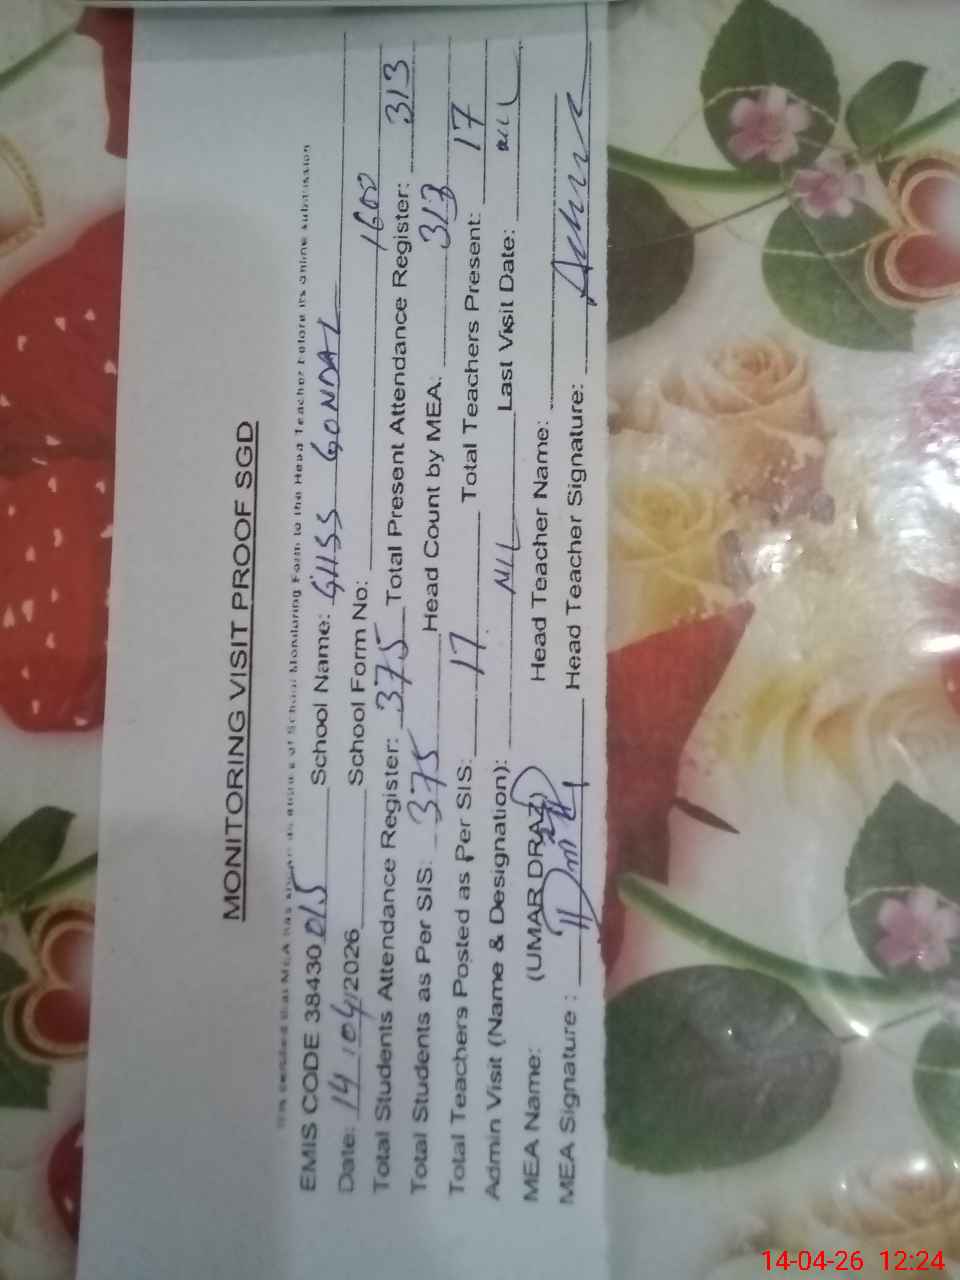 MONITORING VISIT PROOF SGD
It is certified that MEA has shown us and us of School Monitoring Form to the Head Teacher before its online submission
EMIS CODE 38430015 School Name: GHSS GONDAL
Date: 14/04/2026 School Form No: 1600
Total Students Attendance Register: 375 Total Present Attendance Register: 313
Total Students as Per SIS: 375 Head Count by MEA: 313
Total Teachers Posted as Per SIS: 17 Total Teachers Present: 17
Admin Visit (Name & Designation): NIL Last Visit Date: NIL
MEA Name: (UMAR DRAZ) Head Teacher Name:
MEA Signature : Head Teacher Signature:
14-04-26 12:24